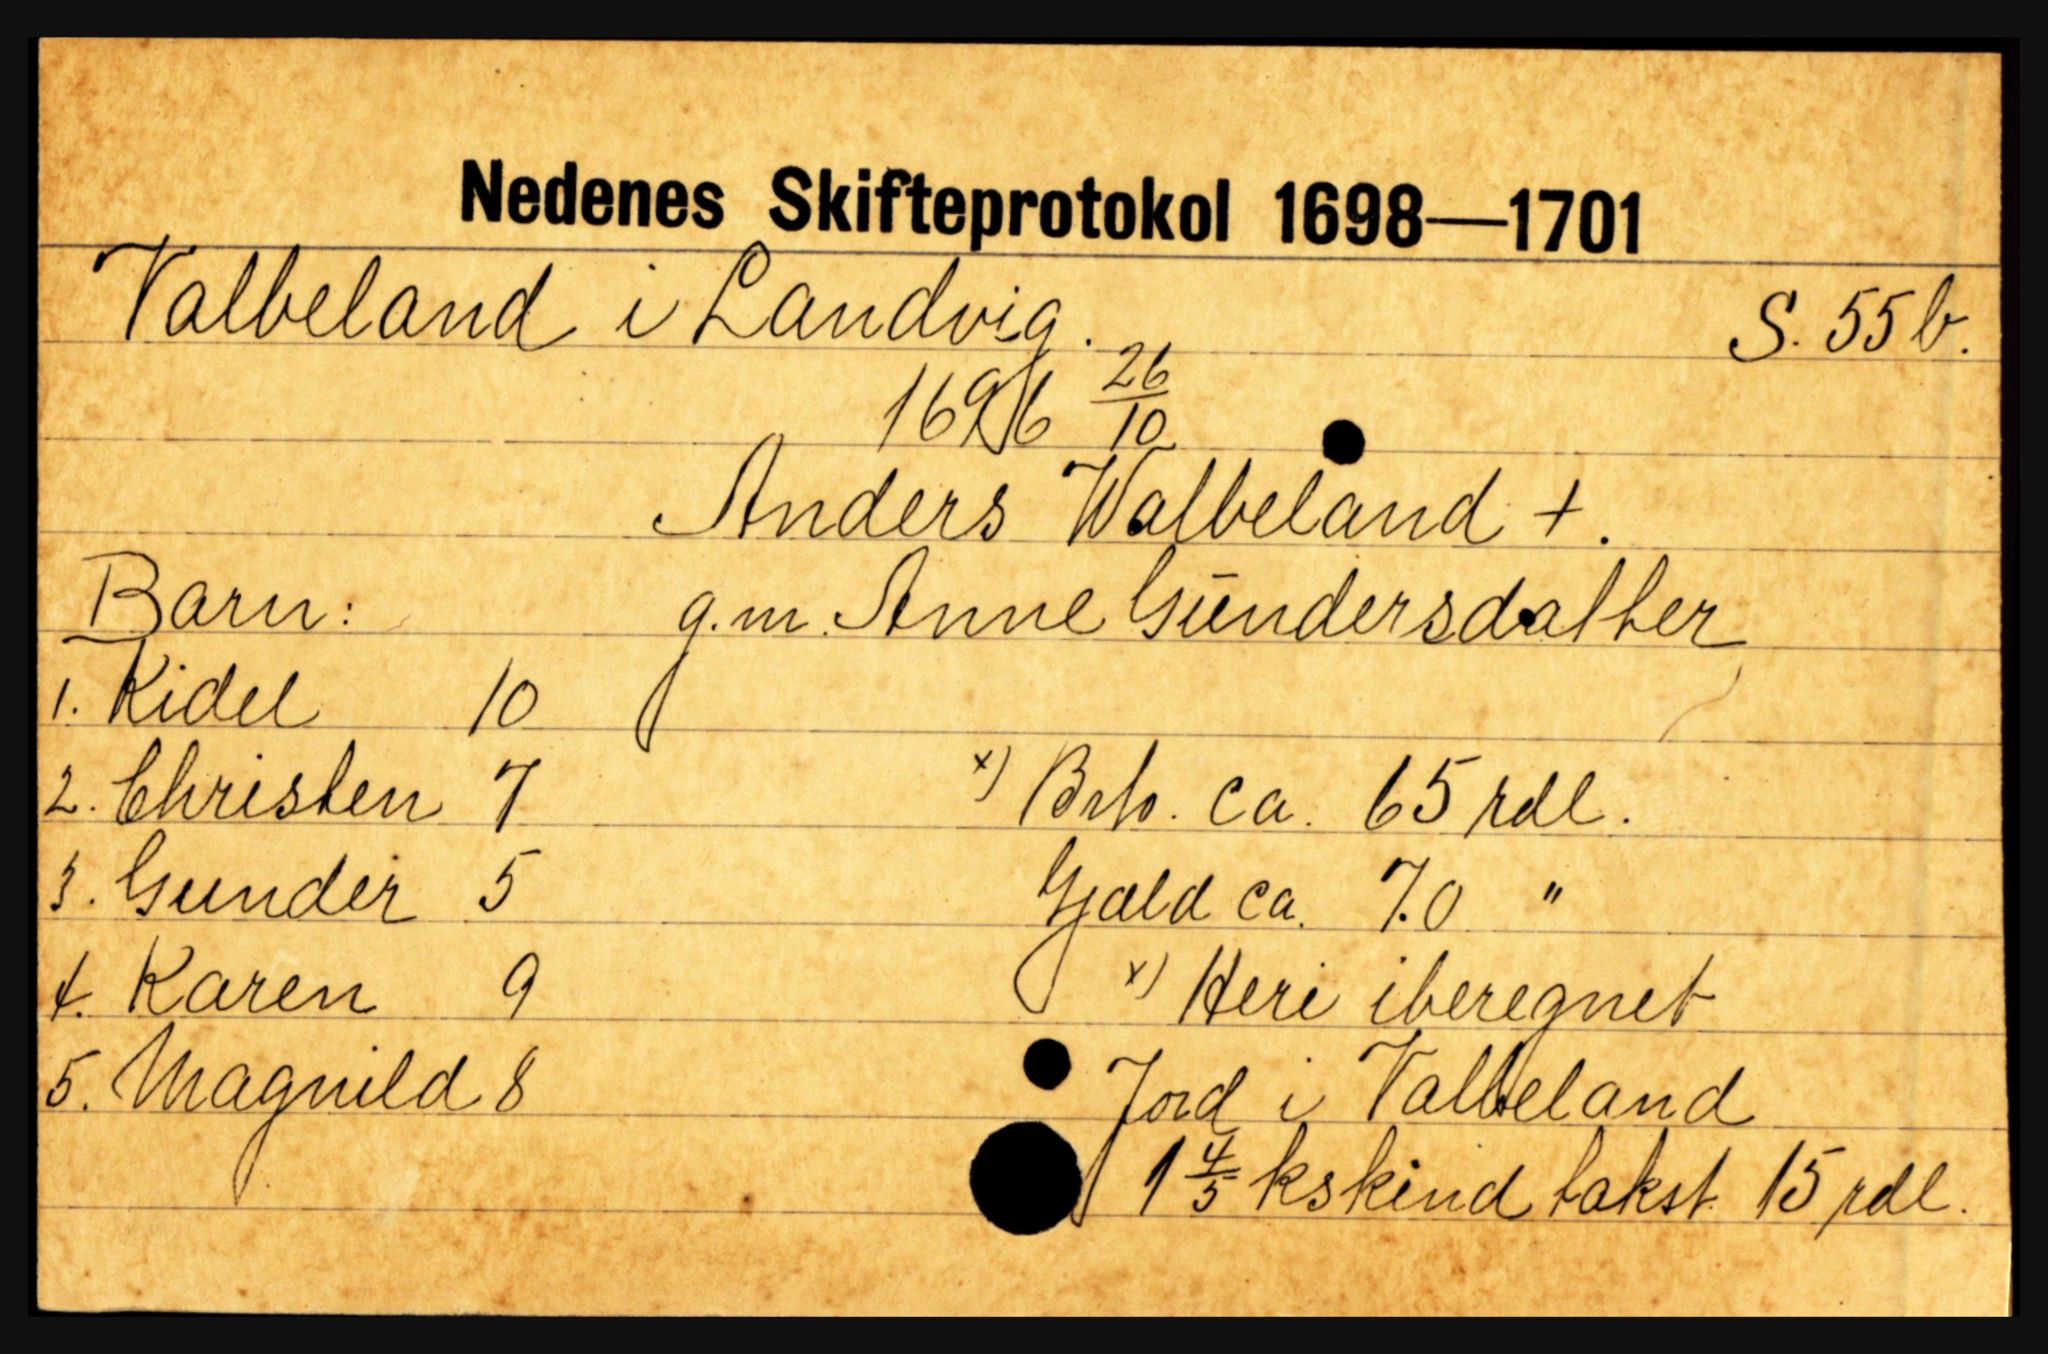 Nedenes Skifteprotokol 1698—1701
Valbeland i Landvig. S. 55 b.
1696 26/10
Anders Walbeland +.
Barn: g.m. Anne Gūndersdatter
1. Kidel 10
2. Christen 7 x) Bto. ca. 65 rdl.
3. Gunder 5 Gjæld ca. 70 "
4. Karen 9 x) Heri iberegnet
5. Magnild 8 Jord i Valbeland
1 4/5 kskind takst. 15 rdl.